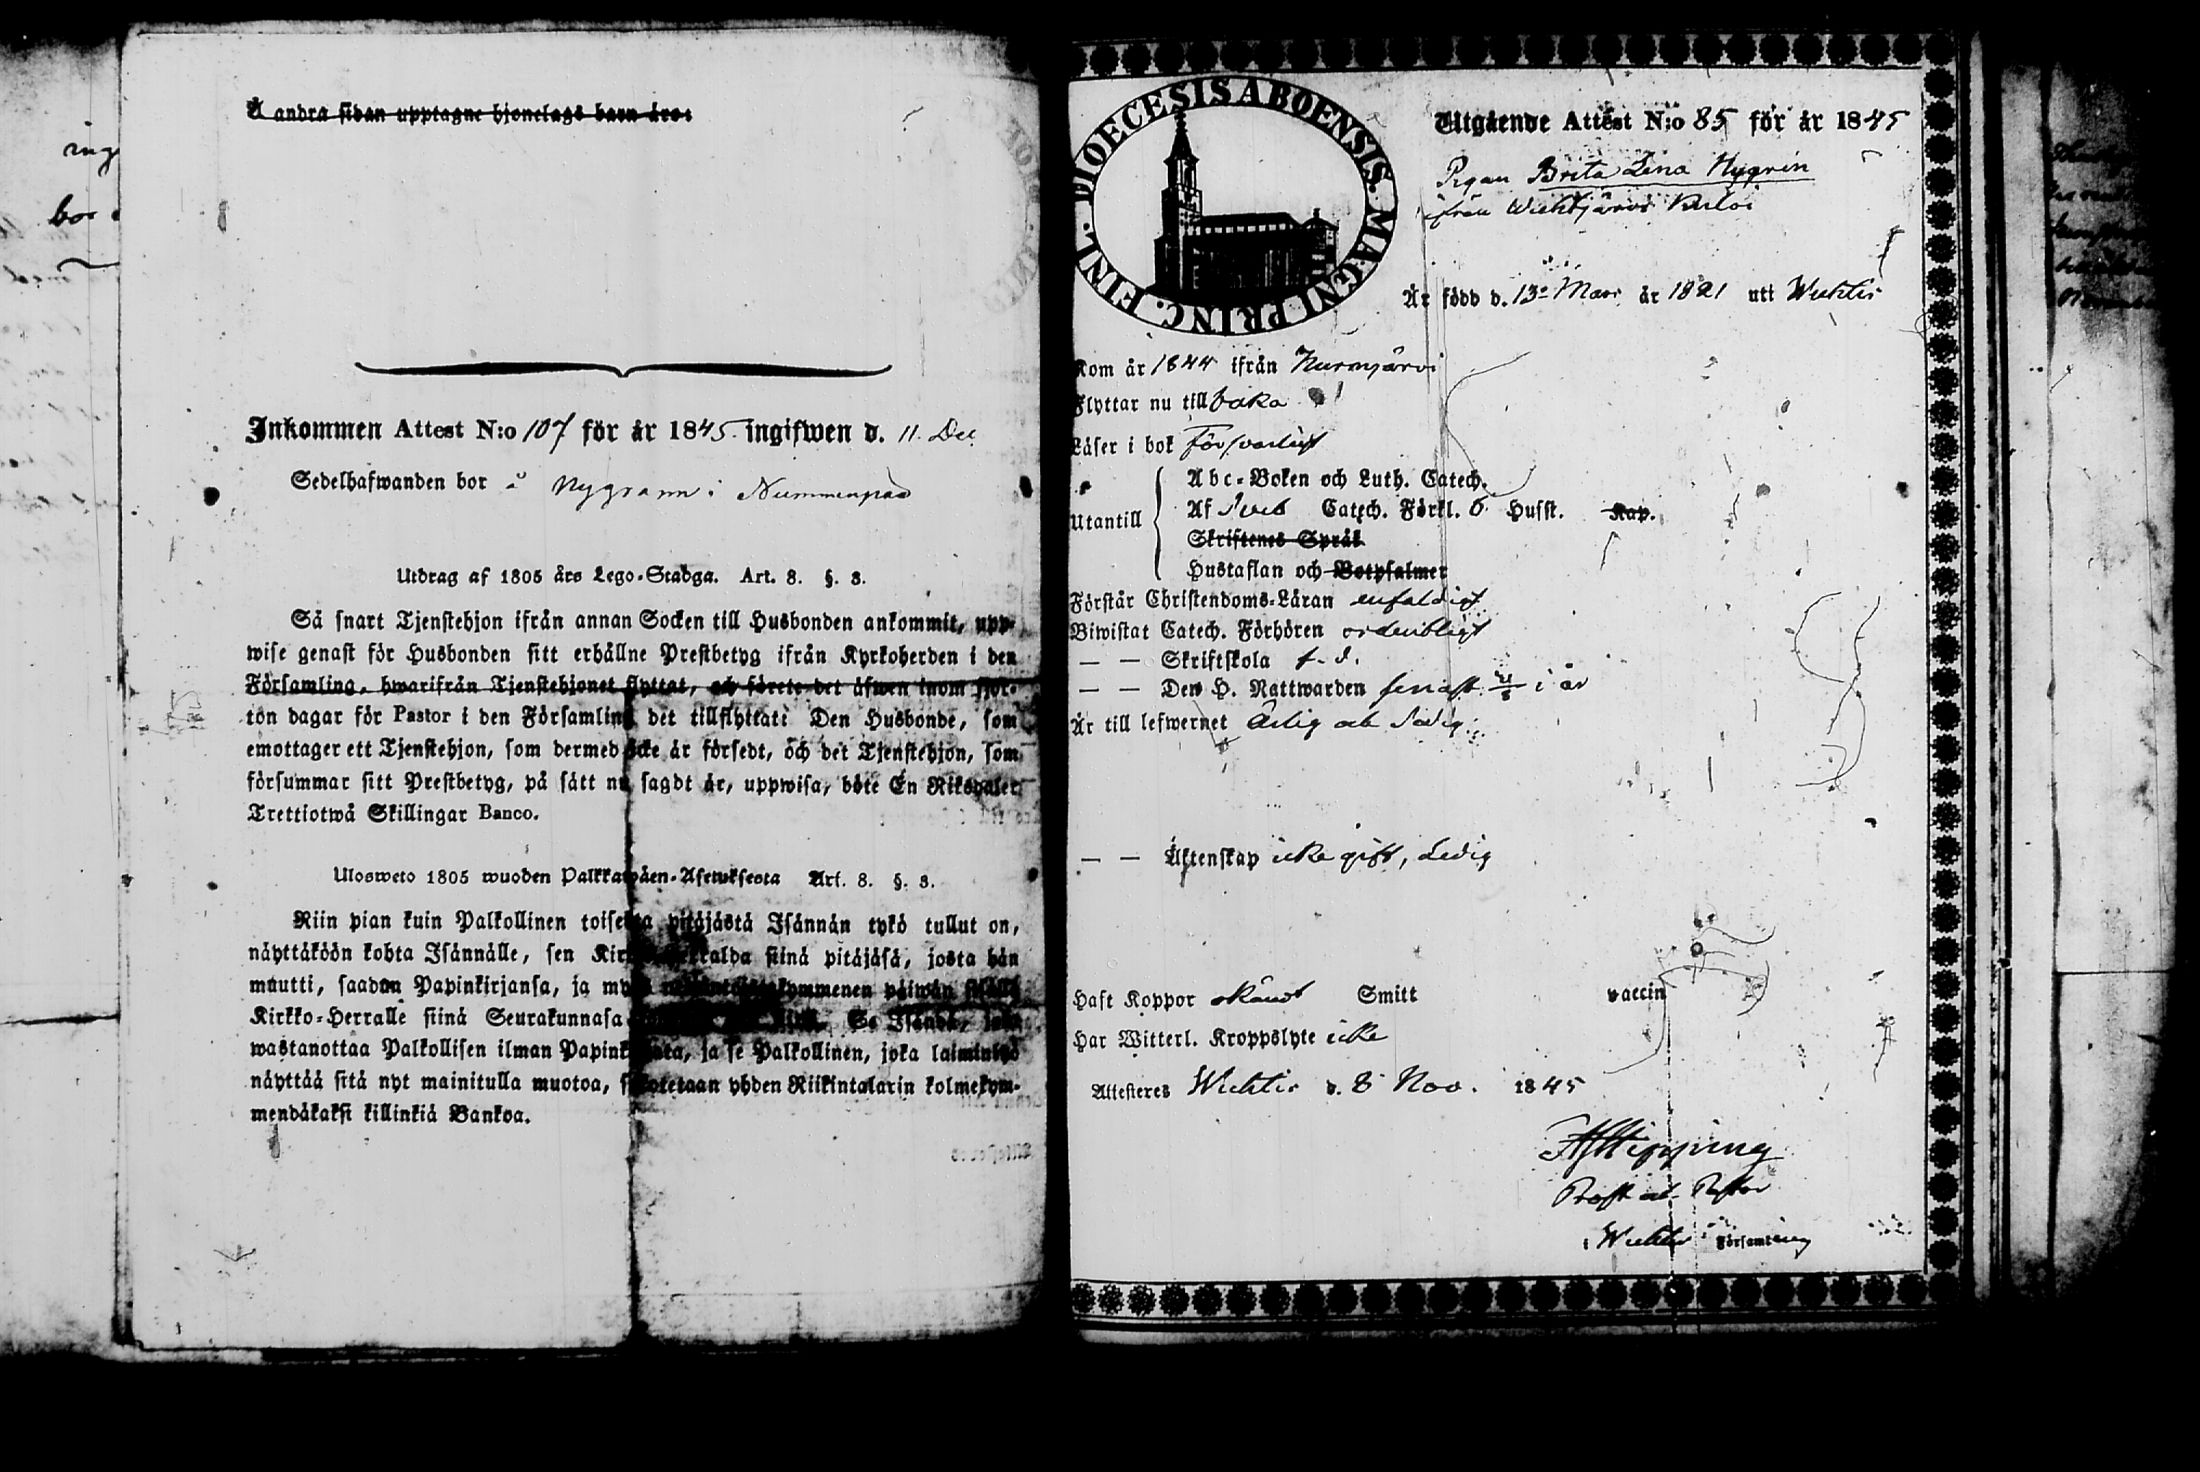 Å andra sidan upptagne hjonelags barn äro:
Inkommen Attest N:o 107 för år 1845 ingifwen d. 11 Dec
Sedelhafwanden bor å Nygrann i Nummenpää
Utdrag af 1805 års Lego-Stadga. Art. 8. §. 3.
Så snart Tjenstehjon ifrån annan Socken till Husbonden ankommit, upp-
wise genast för Husbonden sitt erhållne Prestbetyg ifrån Kyrkoherden i den
Församling, hwarifrån Tjenstehjonet flyttat, och förete det äfwen inom fjor-
ton dagar för Pastor i den Församling det tillflyttat: Den Husbonde, som
emottager ett Tjenstehjon, som dermed icke är försedt, och det Tjenstehjon, som
försummar sitt Prestbetyg, på sätt nu sagdt är, uppwisa, böte En Riksdaler
Trettiotwå Skillingar Banco.
Ulosweto 1805 wuoden Palkkawäen-Asetuksesta Art. 8. §. 3.
Niin pian kuin Palkollinen toisesta pitäjästä Isännän tykö tullut on,
näyttäköön kohta Isännälle, sen Kirkko-Herralda siinä pitäjäsä, josta hän
muutti, saadun Papinkirjansa, ja myös kymmenen päiwän sisällä
Kirkko-Herralle siinä Seurakunnasa Se Isändä, joka
wastanottaa Palkollisen ilman Papinkirjata, ja se Palkollinen, joka laiminlyö
näyttää sitä nyt mainitulla muotoa, sakotetaan yhden Riikintalarin kolmekym-
mendäkaksi killinkiä Bankoa.
DIOECESIS ABOENSIS. MAGNI PRINC. FINL.
Utgående Attest N:o 85 för år 1845
Pigan Brita Lena Nygrén
ifrån Wichtjärvi
Är född d. 13 Mars år 1821 uti Wichtis
Kom år 1844 ifrån Nurmijärvi
Flyttar nu tillbaka
Läser i bok Försvarligt
Utantill
Abc-Boken och Luth. Catech.
Af Sveb Catech. Förkl. 6 Hufst. Kap.
Skriftenes Språk
Hustaflan och Botpsalmer
Förstår Christendoms-Läran enfaldigt
Biwistat Catech. Förhören ordentligt
— — Skriftskola f. d.
— — Den H. Nattwarden senast i år
Är till lefwernet Ärlig och Sedig.
— — Äktenskap icke gift, Ledig
Haft Koppor okändt Smitt vaccin
Har Witterl. Kroppslyte icke
Attesteres Wichtis d. 8 Nov. 1845
AHipping
Prost och Pastor
i Wichtis Församling